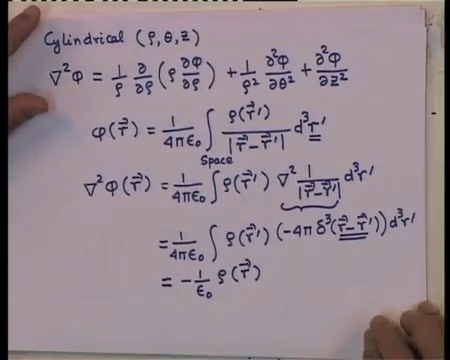 Cylindrical (ρ, θ, z)
∇²φ = 1/ρ ∂/∂ρ (ρ ∂φ/∂ρ) + 1/ρ² ∂²φ/∂θ² + ∂²φ/∂z²
φ(r⃗) = 1/4πε₀ ∫ ρ(r⃗′)/|r⃗−r⃗′| d³r′
Space
∇²φ(r⃗) = 1/4πε₀ ∫ ρ(r⃗′) ∇² 1/|r⃗−r⃗′| d³r′
= 1/4πε₀ ∫ ρ(r⃗′) (−4π δ³(r⃗−r⃗′)) d³r′
= −1/ε₀ ρ(r⃗)